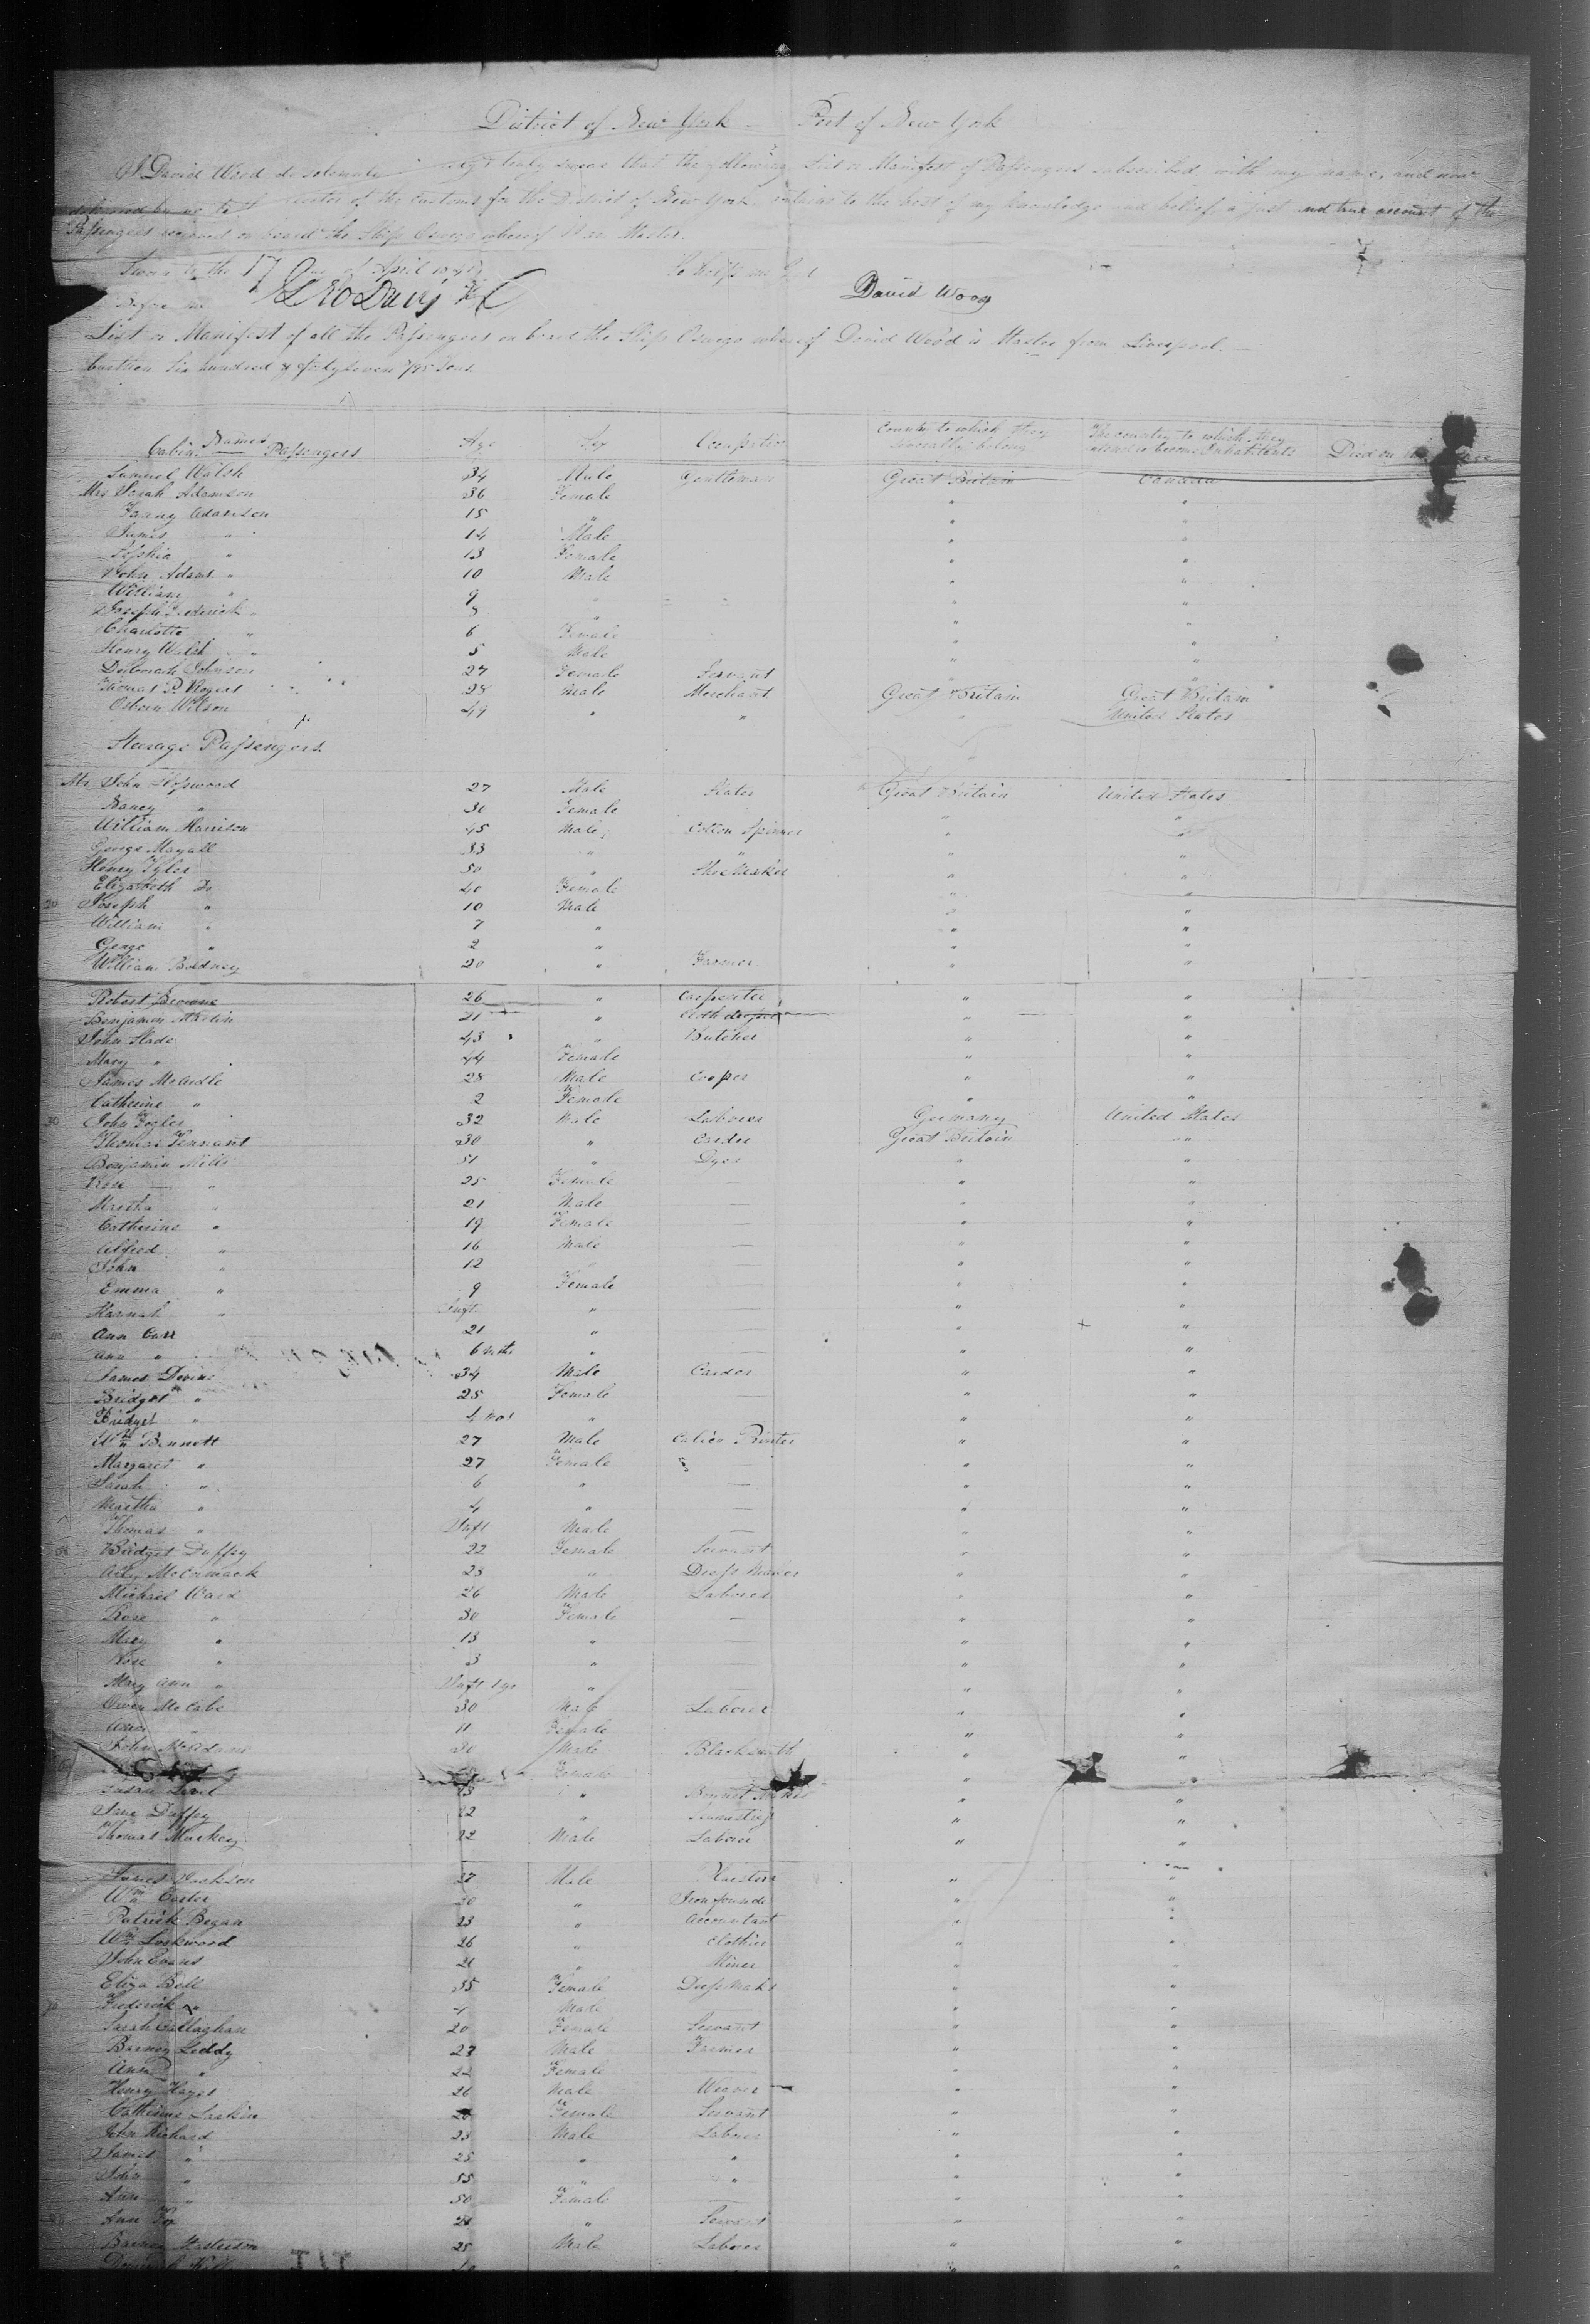 District of New York — Port of New York
I David Wood do solemnly truly swear that the following List or Manifest of Passengers subscribed with my name, and now
of the customs for the District of New York contains to the best of my knowledge and belief a just and true account of the
Passengers received on board the Ship Oswego whereof I am Master.
Sworn to the 17 Day of April So help me God
Before me David Wood
List or Manifest of all the Passengers on board the Ship Oswego whereof David Wood is Master from Liverpool.
Burthen Six hundred & fortyseven /95 Tons
Names Age Sex Occupation Country to which they severally belong The country to which they intend to become Inhabitants Died on
Cabin Passengers
Samuel Walsh 34 Male Gentleman Great Britain Canada
Mrs Sarah Adamson 36 Female " "
Fanny Adamson 15 " " "
James " 14 Male " "
Sophia " 13 Female " "
John Adams " 10 Male " "
William " 9 " " "
Joseph Frederick " 8 " " "
Charlotte " 6 Female " "
Henry Walsh " 5 Male " "
Deborah Johnson 27 Female Servant " "
Thomas P. Rogers 28 Male Merchant Great Britain Great Britain
Osborn Wilson 49 " " " United States
Steerage Passengers
Mr John Hopwood 27 Male Great Britain United States
Nancy " 30 Female " "
William Harrison 45 Male Cotton Spinner " "
George Mayall 33 " " " "
Henry Tyler 50 " Shoemaker " "
Elizabeth Do 40 Female " "
20 Joseph " 10 Male " "
William " 7 " " "
George " 2 " " "
William Boldney 20 " Farmer " "
Robert Browne 26 " Carpenter " "
Benjamin Martin 21 " Cloth " "
John Slade 43 " Butcher " "
Mary " 44 Female " "
James McArdle 28 Male Cooper " "
Catherine " 2 Female " "
30 John Fogler 32 Male Laborer Germany United States
Thomas Tennant 30 " Carder Great Britain "
Benjamin Mills 51 " Dyer " "
" 25 Female — " "
Martha " 21 Male — " "
Catherine " 19 Female — " "
Alfred " 16 Male — " "
John " 12 " — " "
Emma " 9 Female — " "
Hannah " Inft " — " "
40 Ann Carr 21 " — " "
Ann " 6 mths " — " "
James Devine 34 Male Carder " "
Bridget " 25 Female — " "
Bridget " 4 mos " " "
Wm Bennett 27 Male Calico Printer " "
Margaret " 27 Female — " "
Sarah " 6 " — " "
Martha " 4 " — " "
Thomas " Inft Male — " "
50 Bridget Duffey 22 Female Servant " "
McCormack 23 " Dress Maker " "
Michael Ward 26 Male Laborer " "
Rose " 30 Female — " "
Mary " 13 " — " "
Rose " 3 " — " "
Mary Ann " Inft " " "
Owen McCabe 30 Male Laborer " "
Ann " 11 Female " "
John McAdam 30 Male Blacksmith " "
Female " "
Susan " Bonnet Maker " "
Jane Duffey 22 " " "
Thomas Mackey 22 Male Laborer " "
James Jackson 27 Male " "
Wm Carter 30 " Ironfounder " "
Patrick Began 23 " Accountant " "
Wm Lockwood 26 " Clothier " "
John Evans 21 " Miner " "
Eliza Bell 35 Female Dressmaker " "
70 Frederick " Male " "
Sarah Callaghan 20 Female Servant " "
Barney Leddy 27 Male Farmer " "
Ann " 22 Female " "
Henry Hayes 26 Male Weaver " "
Catherine Larkin Female Servant " "
John Richard 23 Male Laborer " "
James " 25 " " " "
John " 55 " " " "
Ann " 50 Female — " "
80 Ann Fox " Servant " "
Barney Masterson 25 Male Laborer " "
Dominick